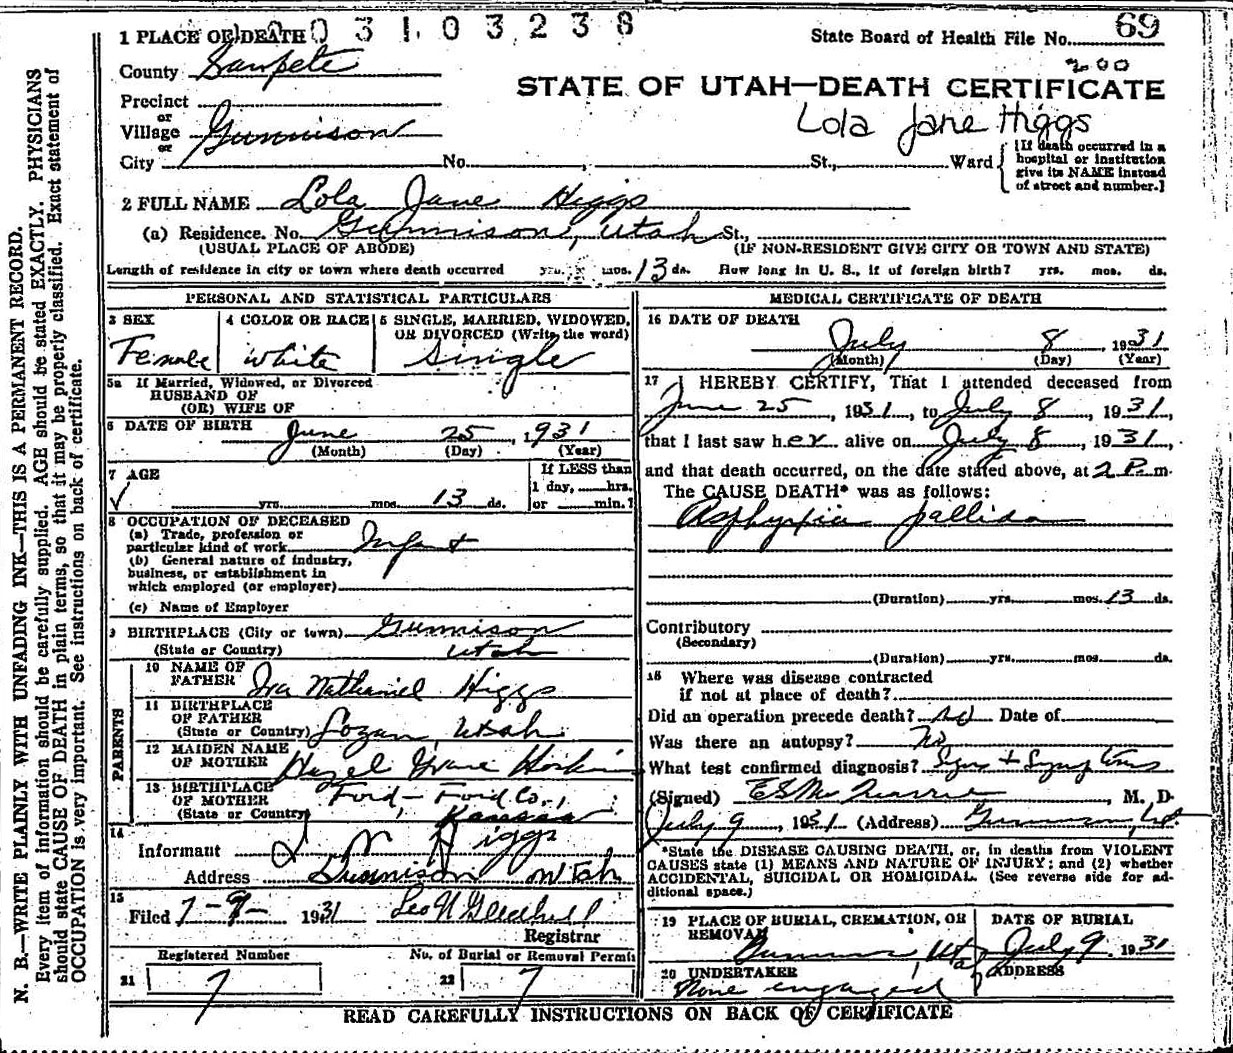 0 3 1 0 3 2 3 8
69
1 PLACE OF DEATH
State Board of Health File No.
200
County Sanpete
STATE OF UTAH—DEATH CERTIFICATE
Precinct
or
Village Gunnison
or
City No. , St., Ward
Lola Jane Higgs
[If death occurred in a
hospital or institution
give its NAME instead
of street and number.]
2 FULL NAME Lola Jane Higgs
(a) Residence. No. Gunnison, Utah St.,
(USUAL PLACE OF ABODE) (IF NON-RESIDENT GIVE CITY OR TOWN AND STATE)
Length of residence in city or town where death occurred yrs. mos. 13 ds. How long in U. S., if of foreign birth? yrs. mos. ds.
PERSONAL AND STATISTICAL PARTICULARS
3 SEX
Female
4 COLOR OR RACE
White
5 SINGLE, MARRIED, WIDOWED,
OR DIVORCED (Write the word)
Single
5a If Married, Widowed, or Divorced
HUSBAND OF
(OR) WIFE OF
6 DATE OF BIRTH June 25, 1931
(Month) (Day) (Year)
7 AGE
yrs. mos. 13 ds.
If LESS than
1 day, hrs.
or min.?
8 OCCUPATION OF DECEASED
(a) Trade, profession or
particular kind of work Infant
(b) General nature of industry,
business, or establishment in
which employed (or employer)
(c) Name of Employer
9 BIRTHPLACE (City or town) Gunnison
(State or Country) Utah
PARENTS
10 NAME OF
FATHER Ira Nathaniel Higgs
11 BIRTHPLACE
OF FATHER
(State or Country) Logan, Utah
12 MAIDEN NAME
OF MOTHER Hazel
13 BIRTHPLACE
OF MOTHER Ford - Ford Co.,
(State or Country) Kansas
14
Informant I N Higgs
Address Gunnison Utah
15
Filed 7-9- 1931 Leo N Gledhill
Registrar
Registered Number
21 7
No. of Burial or Removal Permit
22 7
MEDICAL CERTIFICATE OF DEATH
16 DATE OF DEATH
July 8, 1931
(Month) (Day) (Year)
17 I HEREBY CERTIFY, That I attended deceased from
June 25, 1931, to July 8, 1931,
that I last saw her alive on July 8, 1931
and that death occurred, on the date stated above, at 2 P. m.
The CAUSE DEATH* was as follows:
Asphyxia pallida
(Duration) yrs. mos. 13 ds.
Contributory
(Secondary)
(Duration) yrs. mos. ds.
18 Where was disease contracted
if not at place of death?
Did an operation precede death? no Date of
Was there an autopsy? No
What test confirmed diagnosis? Signs + Symptoms
(Signed) E S , M. D.
July 9, 1931 (Address) Gunnison, Ut.
*State the DISEASE CAUSING DEATH, or, in deaths from VIOLENT
CAUSES state (1) MEANS AND NATURE OF INJURY; and (2) whether
ACCIDENTAL, SUICIDAL OR HOMICIDAL. (See reverse side for ad-
ditional space.)
19 PLACE OF BURIAL, CREMATION, OR
REMOVAL
Gunnison, Utah
DATE OF BURIAL
July 9 1931
20 UNDERTAKER
None engaged
ADDRESS
READ CAREFULLY INSTRUCTIONS ON BACK OF CERTIFICATE
N. B.—WRITE PLAINLY WITH UNFADING INK—THIS IS A PERMANENT RECORD.
Every item of information should be carefully supplied. AGE should be stated EXACTLY. PHYSICIANS
should state CAUSE OF DEATH in plain terms, so that it may be properly classified. Exact statement of
OCCUPATION is very important. See instructions on back of certificate.